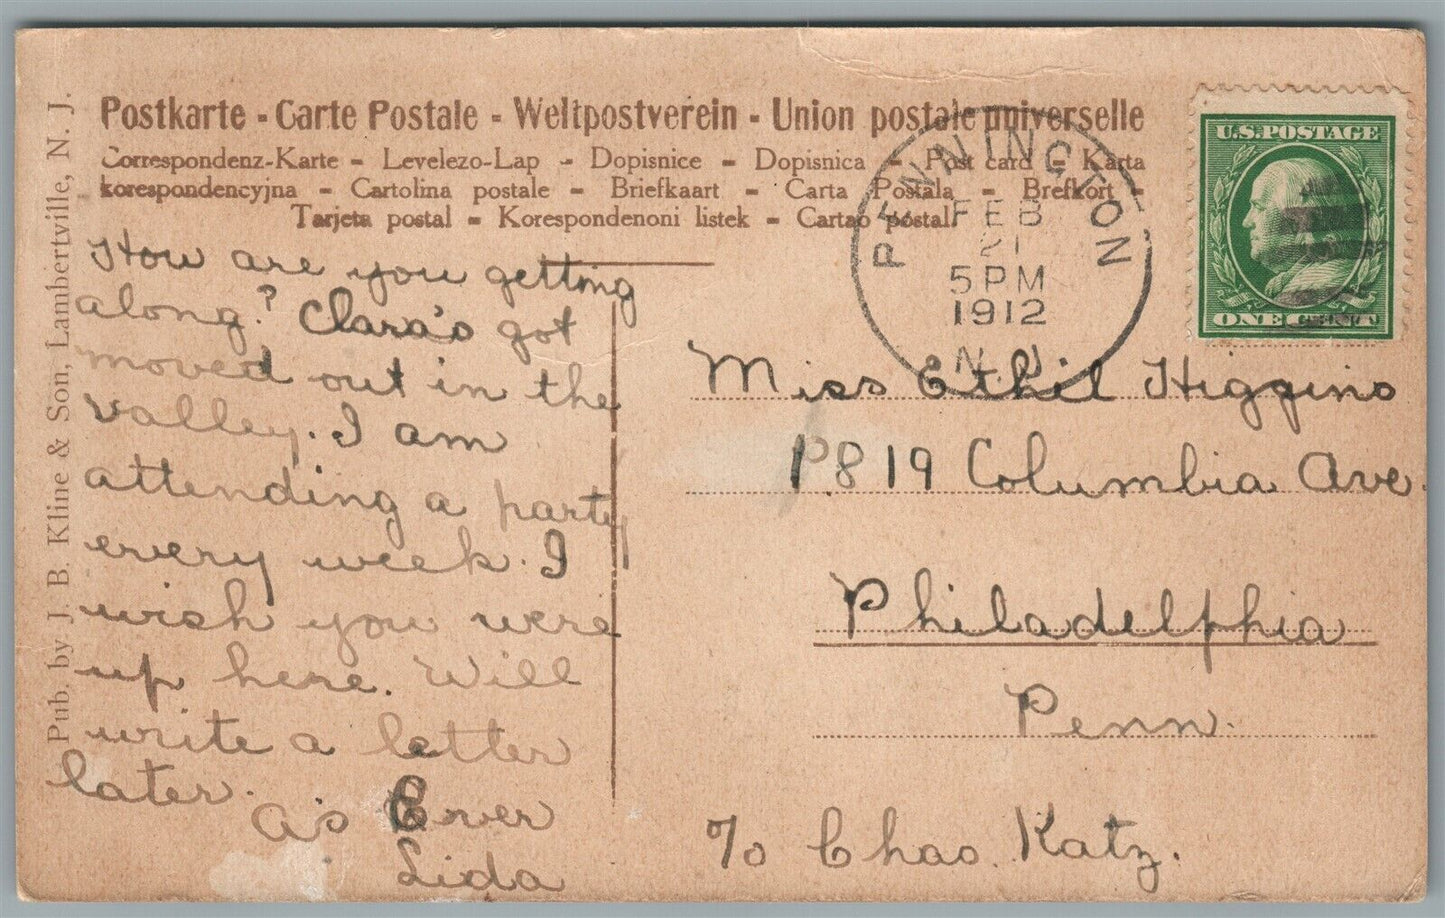 Postkarte - Carte Postale - Weltpostverein - Union postale universelle
Correspondenz-Karte - Levelezo-Lap - Dopisnice - Dopisnica - Post card - Karta
korespondencyjna - Cartolina postale - Briefkaart - Carta Postala - Brefkort -
Tarjeta postal - Korespondenoni listek - Cartao postal
Pub. by J. B. Kline & Son, Lambertville, N. J.
PENNINGTON
FEB
21
5 PM
1912
N.J.
U.S. POSTAGE
ONE CENT
How are you getting
along? Clara's got
moved out in the
valley. I am
attending a party
every week. I
wish you were
up here. Will
write a letter
later.
As Ever
Lida
Miss Ethil Higgins
1819 Columbia Ave.
Philadelphia
Penn.
c/o Chas. Katz.